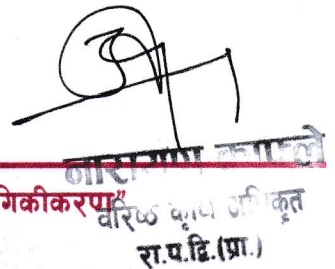 नारायण काफ्ले
गिकीकरण” वरिष्ठ कृषि अधिकृत
रा.प.द्वि.(प्रा.)